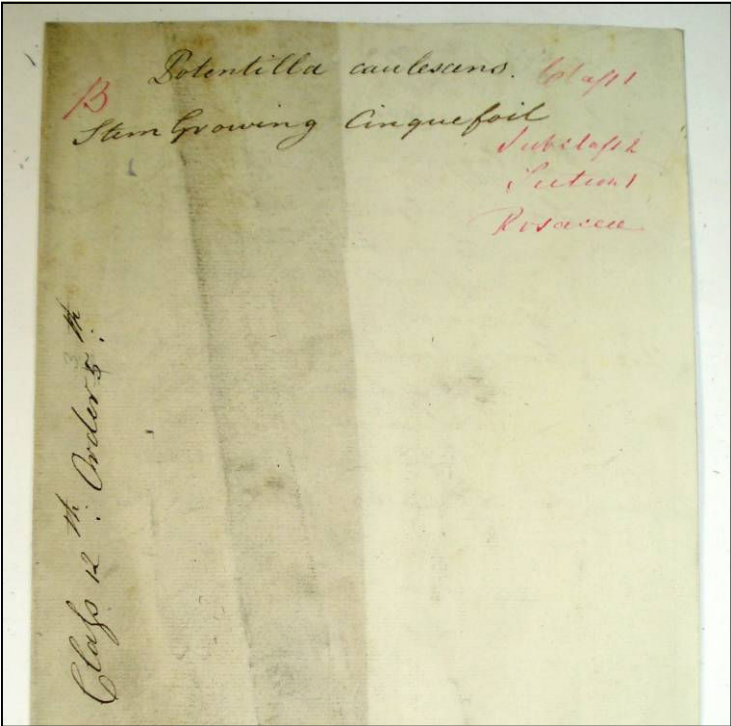 Potentilla caulescens. Class 1
B
Stem Growing Cinquefoil
Subclass 2
Section 1
Rosaceae
Class 12th. Order 5th.